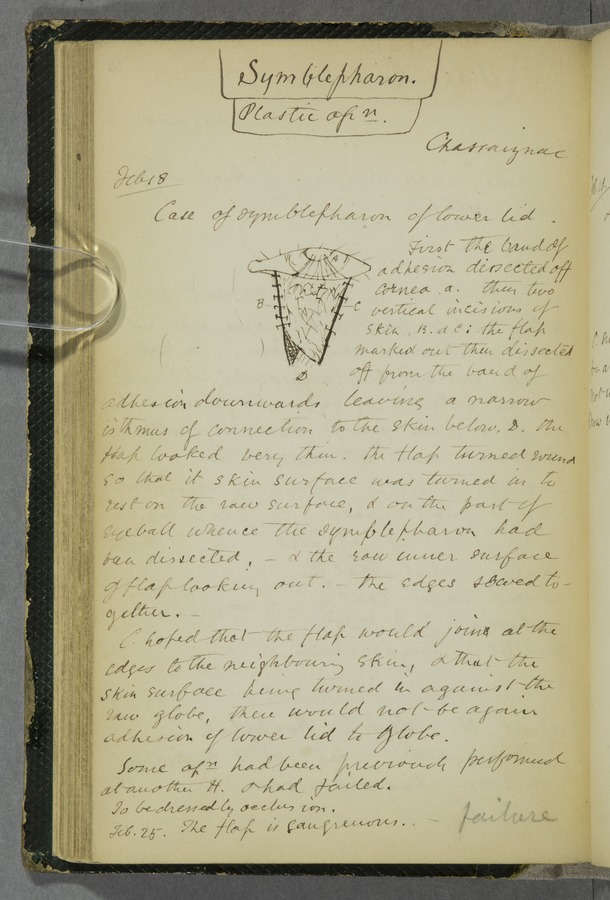 Symblepharon.
Plastic opn.
Chassaignac
Feb 18
Case of symblepharon of lower lid.
First the band of
adhesion dissected off
cornea. a. then two
vertical incisions of
skin, B. & C: the flap
marked out then dissected
off from the band of
adhesion downwards leaving a narrow
isthmus of connection to the skin below. D. the
flap looked very thin. the flap turned round
so that it skin surface was turned in to
rest on the raw surface, & on the part of
eyeball whence the symblepharon had
been dissected, – & the raw inner surface
of flap looking out. – the edges sewed to-
gether. –
C. hoped that the flap would join at the
edges to the neighbouring skin, & that the
skin surface being turned in against the
raw globe, there would not be again
adhesion of lower lid to globe.
Some opn had been previously performed
at another H. & had failed.
To be dressed by occlusion.
Feb. 25. The flap is gangrenous. – failure
A
B
C
D